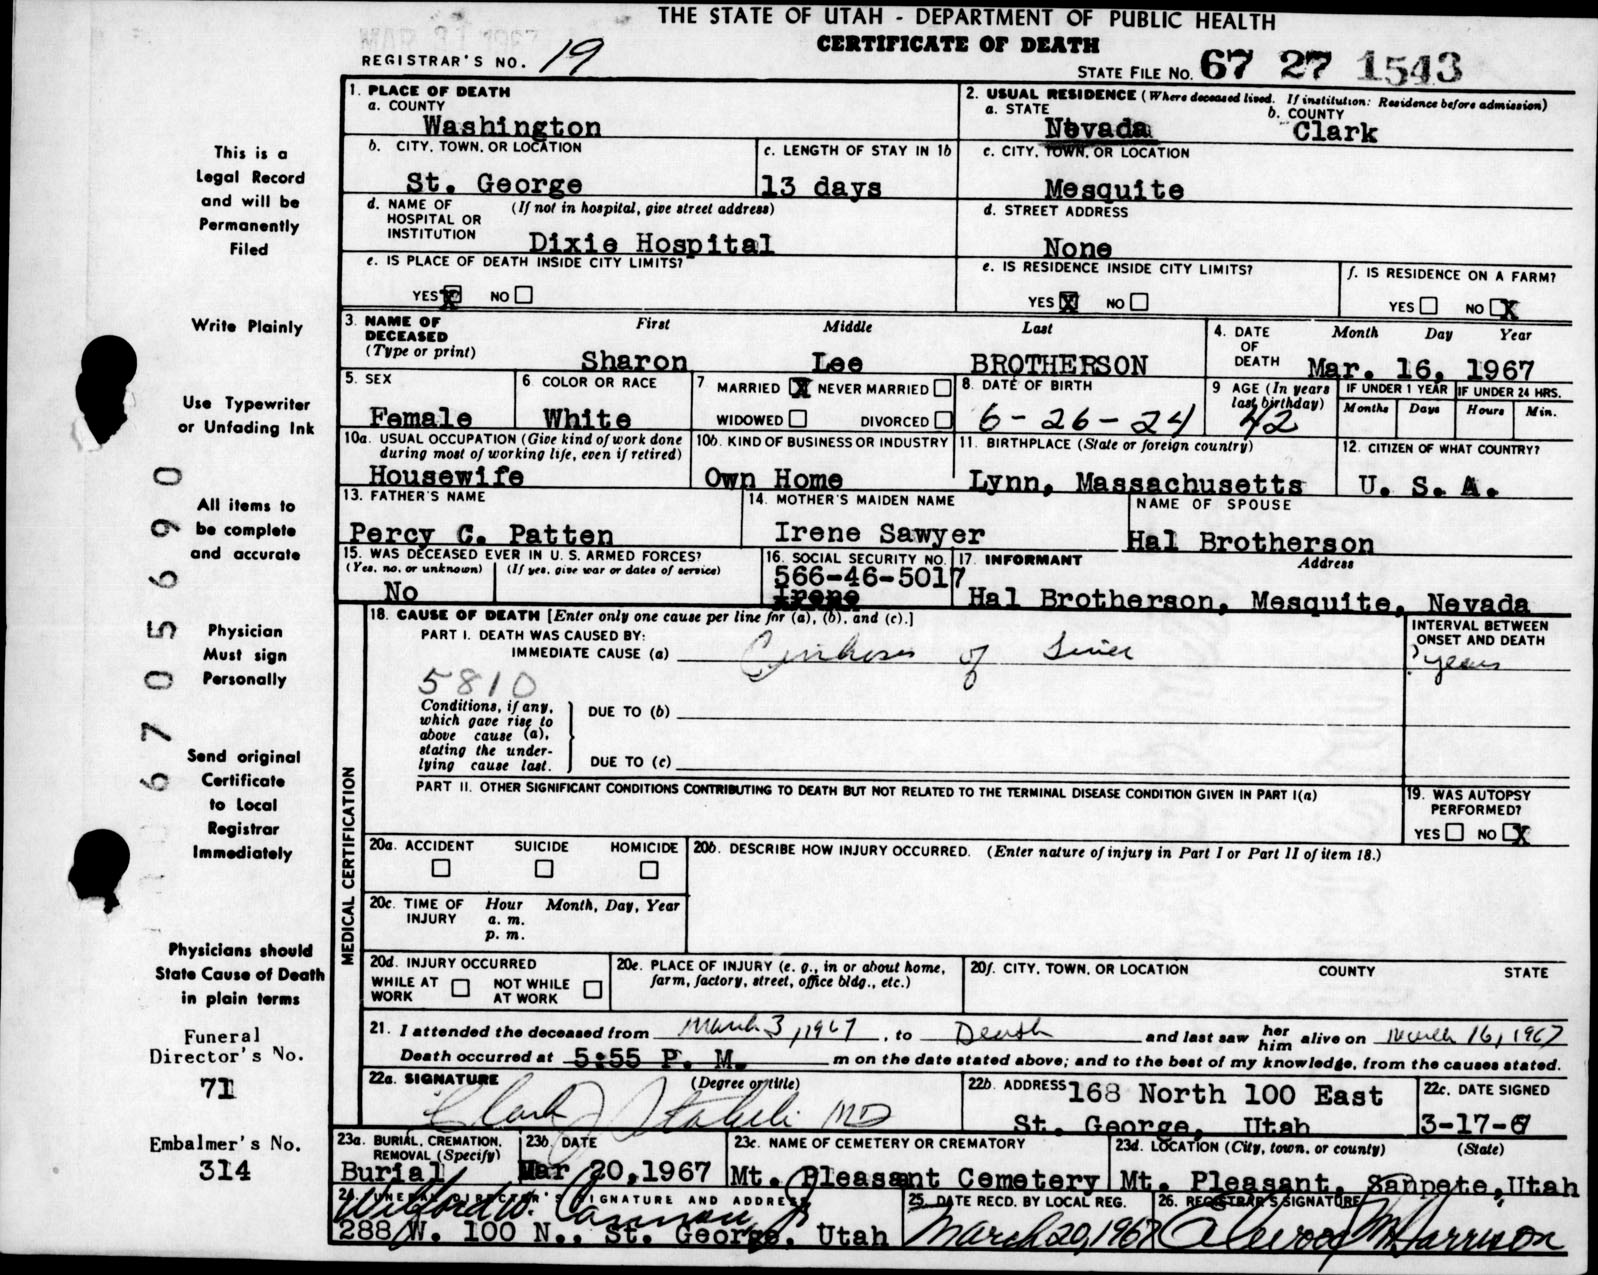 THE STATE OF UTAH - DEPARTMENT OF PUBLIC HEALTH
MAR 31 1967
CERTIFICATE OF DEATH
REGISTRAR'S NO. 19
STATE FILE NO. 67 27 1543
This is a
Legal Record
and will be
Permanently
Filed
Write Plainly
Use Typewriter
or Unfading Ink
All items to
be complete
and accurate
Physician
Must sign
Personally
Send original
Certificate
to Local
Registrar
Immediately
Physicians should
State Cause of Death
in plain terms
Funeral
Director's No.
71
Embalmer's No.
314
670 05690
1. PLACE OF DEATH
a. COUNTY
Washington
2. USUAL RESIDENCE (Where deceased lived. If institution: Residence before admission)
a. STATE b. COUNTY
Nevada Clark
b. CITY, TOWN, OR LOCATION
St. George
c. LENGTH OF STAY IN 1b
13 days
c. CITY, TOWN, OR LOCATION
Mesquite
d. NAME OF (If not in hospital, give street address)
HOSPITAL OR
INSTITUTION
Dixie Hospital
d. STREET ADDRESS
None
e. IS PLACE OF DEATH INSIDE CITY LIMITS?
YES X NO
e. IS RESIDENCE INSIDE CITY LIMITS?
YES X NO
f. IS RESIDENCE ON A FARM?
YES NO X
3. NAME OF First Middle Last
DECEASED
(Type or print)
Sharon Lee BROTHERSON
4. DATE Month Day Year
OF
DEATH Mar. 16, 1967
5. SEX
Female
6. COLOR OR RACE
White
7. MARRIED X NEVER MARRIED
WIDOWED DIVORCED
8. DATE OF BIRTH
6-26-24
9. AGE (In years
last birthday)
42
IF UNDER 1 YEAR IF UNDER 24 HRS.
Months Days Hours Min.
10a. USUAL OCCUPATION (Give kind of work done
during most of working life, even if retired)
Housewife
10b. KIND OF BUSINESS OR INDUSTRY
Own Home
11. BIRTHPLACE (State or foreign country)
Lynn, Massachusetts
12. CITIZEN OF WHAT COUNTRY?
U. S. A.
13. FATHER'S NAME
Percy C. Patten
14. MOTHER'S MAIDEN NAME
Irene Sawyer
NAME OF SPOUSE
Hal Brotherson
15. WAS DECEASED EVER IN U. S. ARMED FORCES?
(Yes, no, or unknown) (If yes, give war or dates of service)
No
16. SOCIAL SECURITY NO.
566-46-5017
Irene
17. INFORMANT Address
Hal Brotherson, Mesquite, Nevada
MEDICAL CERTIFICATION
18. CAUSE OF DEATH [Enter only one cause per line for (a), (b), and (c).]
PART I. DEATH WAS CAUSED BY:
IMMEDIATE CAUSE (a) Cirrhosis of Liver
INTERVAL BETWEEN
ONSET AND DEATH
? years
5810
Conditions, if any,
which gave rise to
above cause (a),
stating the under-
lying cause last.
DUE TO (b)
DUE TO (c)
PART II. OTHER SIGNIFICANT CONDITIONS CONTRIBUTING TO DEATH BUT NOT RELATED TO THE TERMINAL DISEASE CONDITION GIVEN IN PART I(a)
19. WAS AUTOPSY
PERFORMED?
YES NO X
20a. ACCIDENT SUICIDE HOMICIDE
20b. DESCRIBE HOW INJURY OCCURRED. (Enter nature of injury in Part I or Part II of item 18.)
20c. TIME OF Hour Month, Day, Year
INJURY a. m.
p. m.
20d. INJURY OCCURRED
WHILE AT NOT WHILE
WORK AT WORK
20e. PLACE OF INJURY (e. g., in or about home,
farm, factory, street, office bldg., etc.)
20f. CITY, TOWN, OR LOCATION COUNTY STATE
21. I attended the deceased from March 3, 1967, to Death and last saw her him alive on March 16, 1967
Death occurred at 5:55 P. M. m on the date stated above; and to the best of my knowledge, from the causes stated.
22a. SIGNATURE (Degree or title)
Clark J Staheli MD
22b. ADDRESS 168 North 100 East
St. George, Utah
22c. DATE SIGNED
3-17-67
23a. BURIAL, CREMATION,
REMOVAL (Specify)
Burial
23b. DATE
Mar 20, 1967
23c. NAME OF CEMETERY OR CREMATORY
Mt. Pleasant Cemetery
23d. LOCATION (City, town, or county) (State)
Mt. Pleasant, Sanpete, Utah
24. FUNERAL DIRECTOR'S SIGNATURE AND ADDRESS
Wilford W. Cannon Jr
288 W. 100 N., St. George, Utah
25. DATE RECD. BY LOCAL REG.
March 20, 1967
26. REGISTRAR'S SIGNATURE
M. Harrison